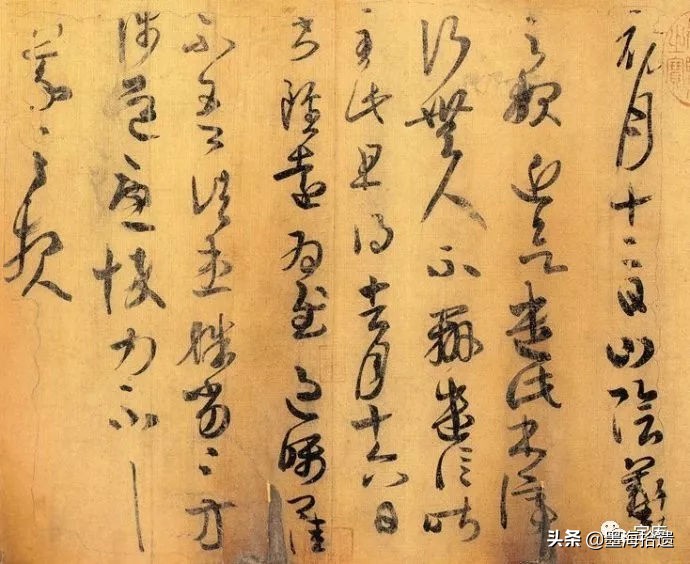 初月十二日山陰羲
之報近欲遣此書停
行無人不辦遣信昨
至此且得去月十六日
書雖遠為慰過囑卿
不吾諸患殊劣〻方
涉道憂悴力不具
羲之報
头条 @墨海拾遗